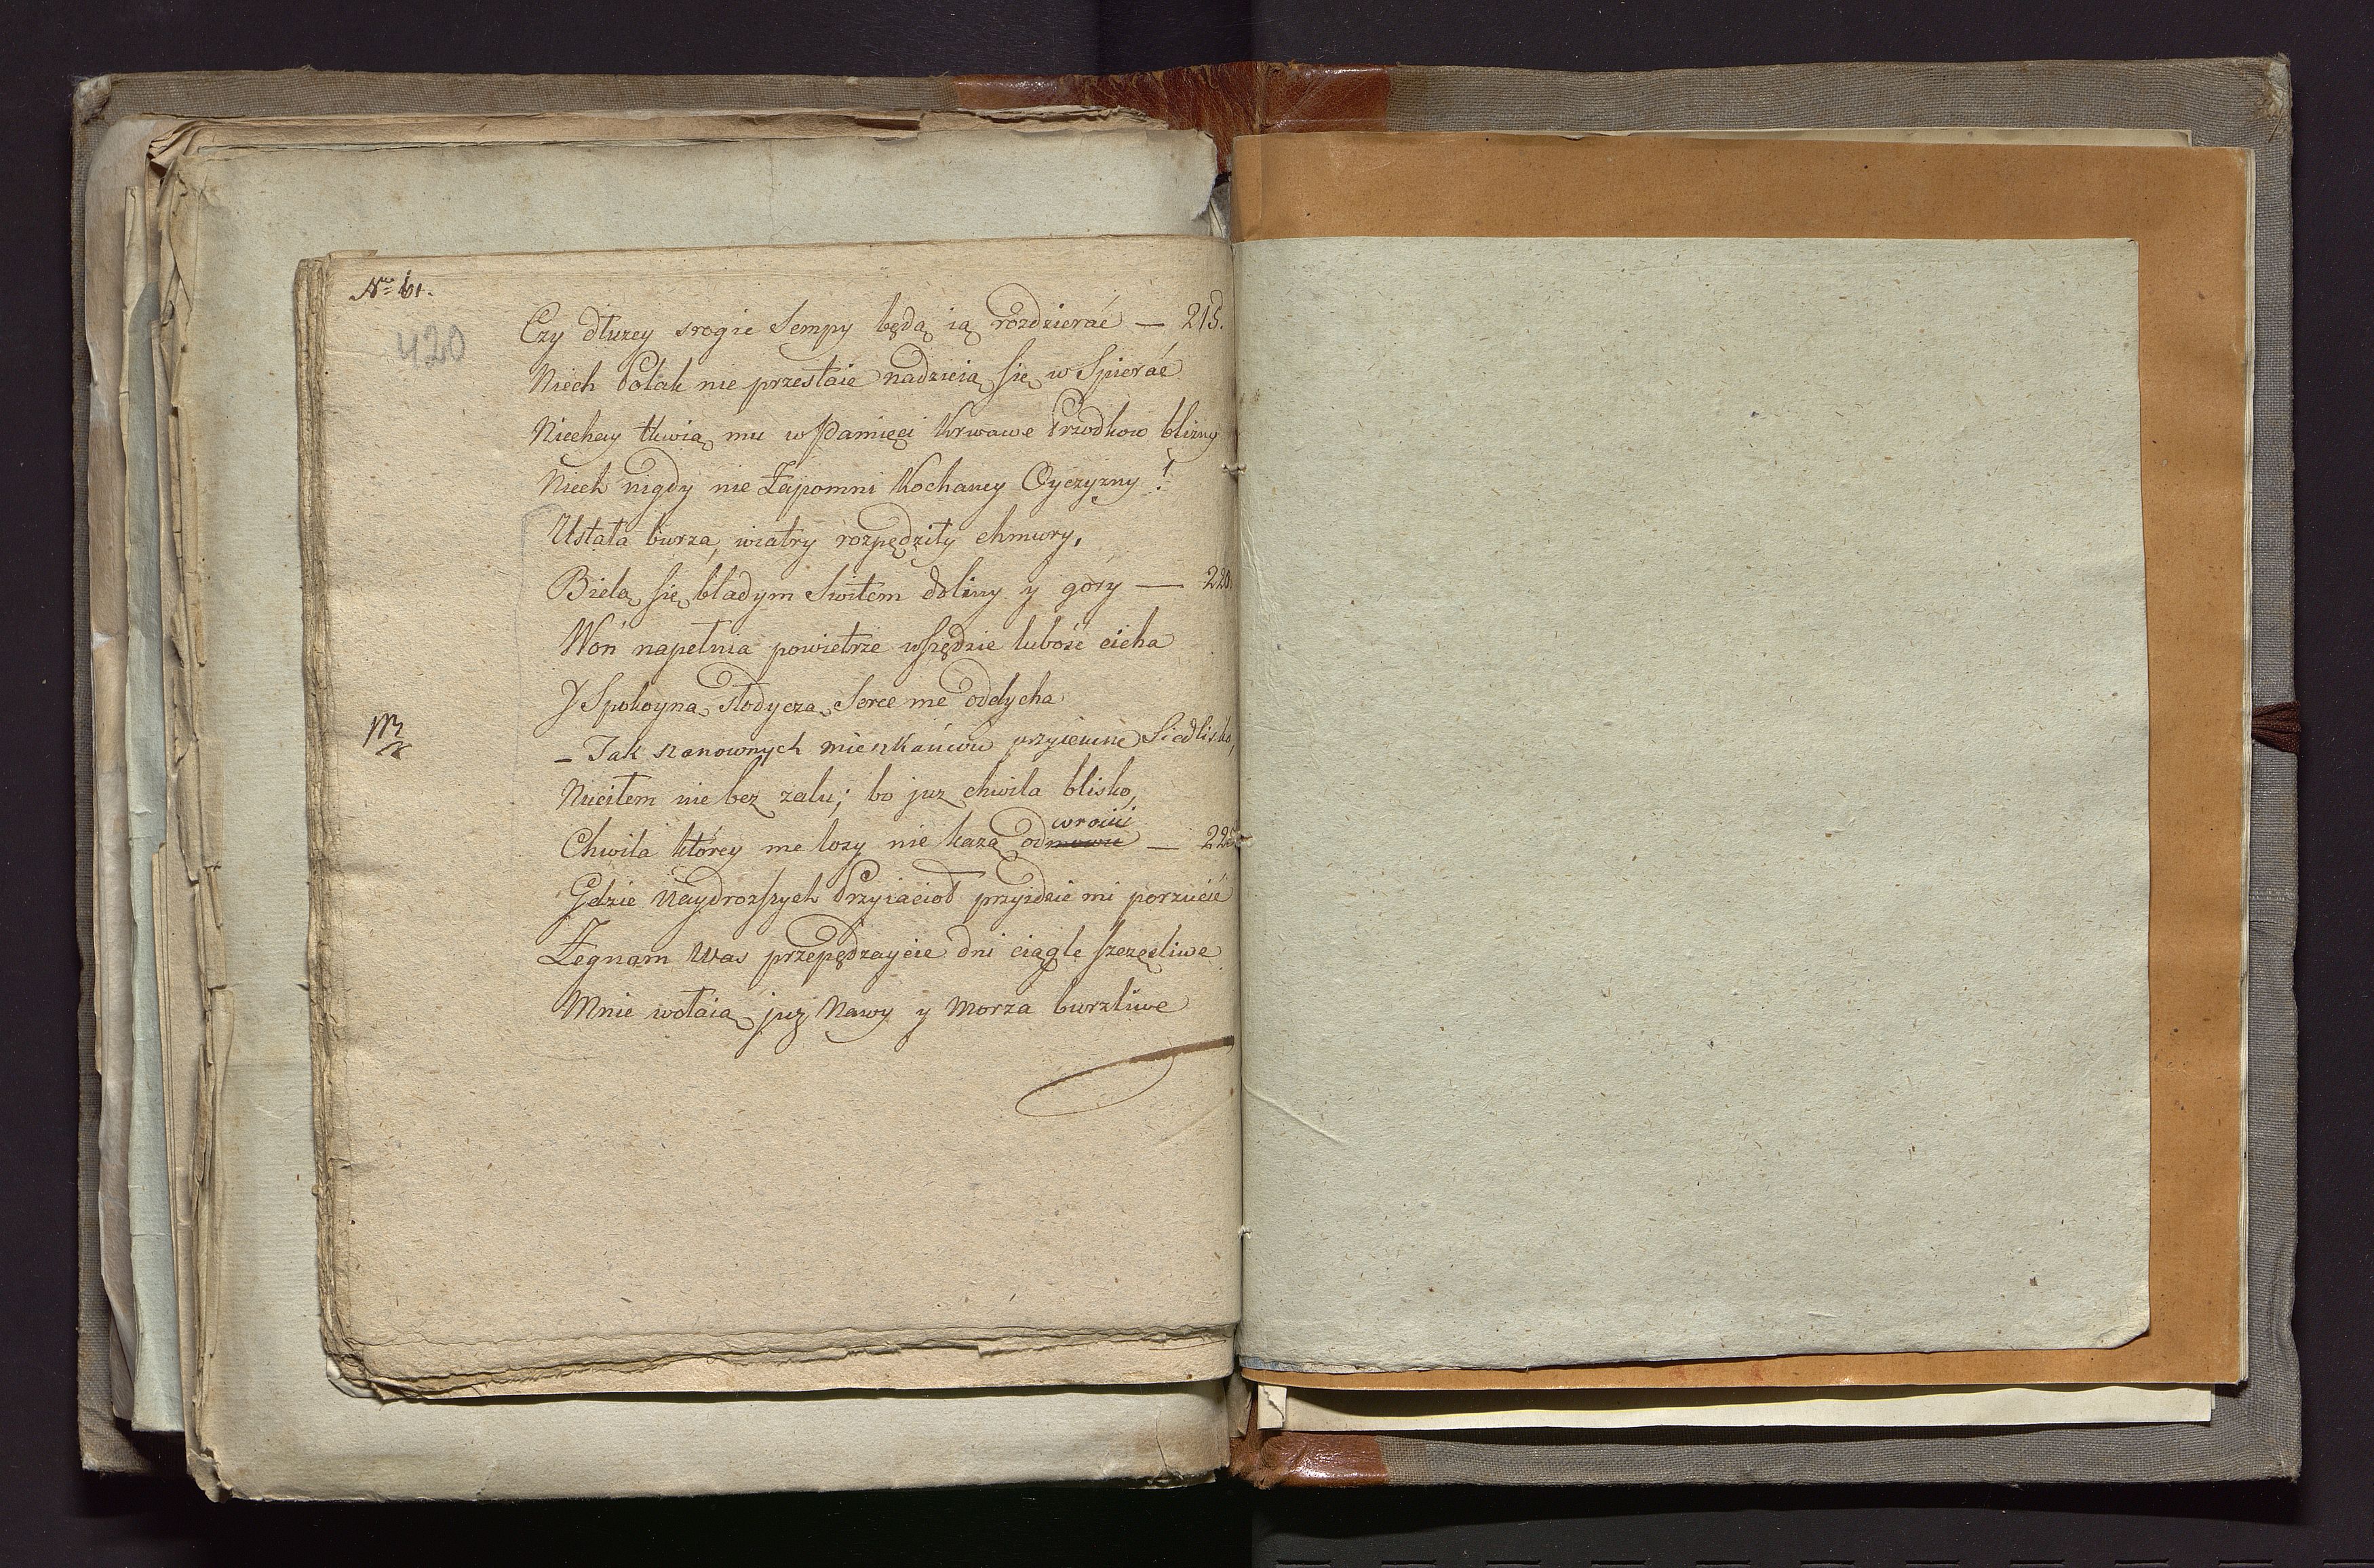 No 61.
420
Czy dłuzey srogie Sempy będą ią rozdzierać — 215.
Niech Polak nie przestaie nadzieią się wspierać
Niechay tkwią mu w Pamięci Krwawe Przodkow blizny
Niech nigdy nie Zapomni Kochaney Oyczyzny!
Ustała burza, wiatry rozpędziły chmury,
Bielą się bladym switem doliny y góry — 220.
Woń napełnia powietrze wszędzie lubość cicha
Y Spokoyną słodyczą Serce me oddycha
– Tak szanownych mieszkańców przyiemne Siedlisko,
Nuciłem nie bez zalu; bo juz chwila blisko,
wrócić
Chwila którey me losy nie kazą odmowić — 225
Gdzie Naydrozszych Przyiacioł przyidzie mi porzucić
Zegnam Was przepędzaycie dni ciągle szczęśliwe
Mnie wołaią juz Nawy y Morza burzliwe